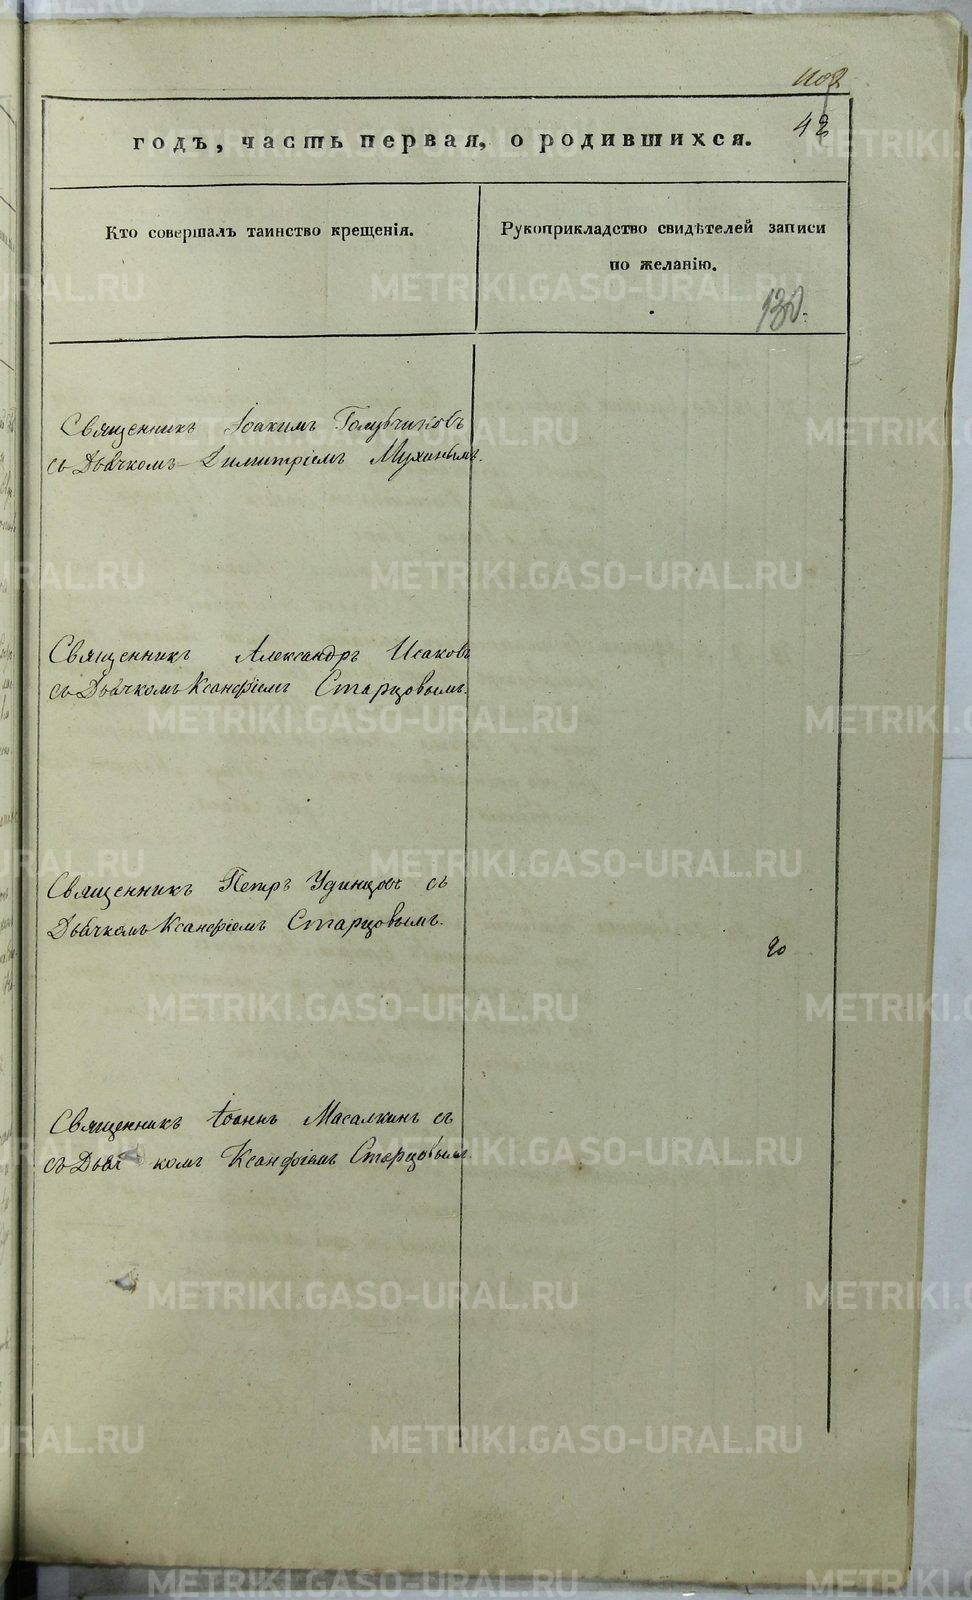 1102
42
годъ, часть первая, о родившихся.
Кто совершалъ таинство крещенія.
Рукоприкладство свидѣтелей записи
по желанію.
130.
Священникъ Іоакимъ Голубчиковъ
съ Дьячкомъ Димитріемъ Мухинымъ.
Священникъ Александръ Исаковъ
съ Дьячкомъ Ксанфіемъ Старцовымъ.
Священникъ Петръ Удинцовъ съ
Дьячкомъ Ксанфіемъ Старцовымъ.
20
Священникъ Іоаннъ Масалкинъ съ
съ Дьячкомъ Ксанфіемъ Старцовымъ
METRIKI.GASO-URAL.RU